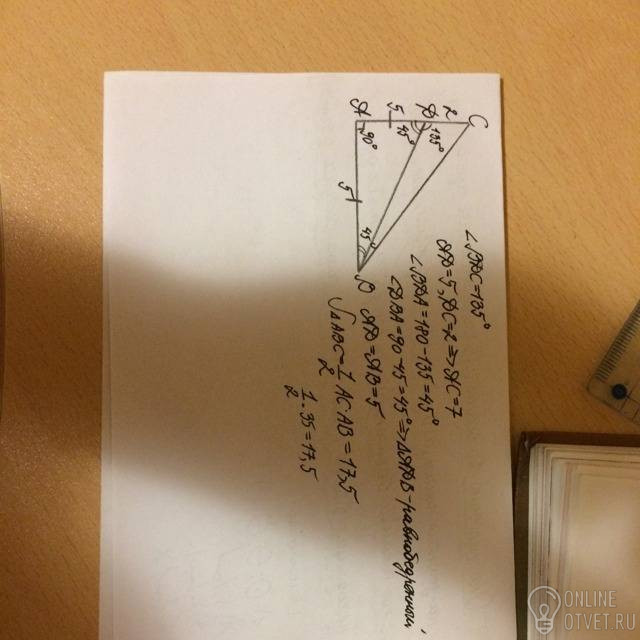 C
2
D
135°
45°
5
A
90°
5
45°
B
∠BDC=135°
AD=5, DC=2 => AC=7
∠BDA=180-135=45°
∠DBA=90-45=45° => ΔADB-равнобедренный
AD=AB=5
S△ABC=1/2 AC·AB=17,5
1/2·35=17,5
ONLINE
OTVET.RU